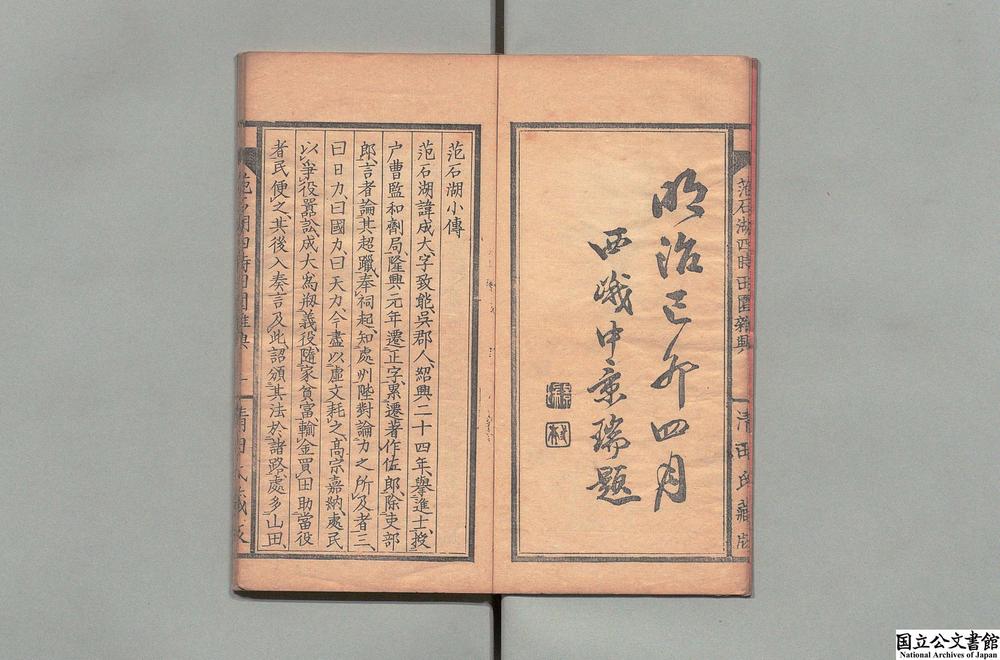 明治己卯四月
西峨中章瑞題
范石湖四時田園雜興
清田氏藏版
范石湖小傳
范石湖諱成大字致能吳郡人紹興二十四年擧進士授
户曹監和劑局隆興元年遷正字累遷著作佐郎除吏部
郎言者論其超躐奉祠起知處州陛對論力之所及者三
曰日力曰國力曰天力今盡以虛文耗之高宗嘉納處民
以爭役嚚訟成大爲剏義役隨家貧富輸金買田助當役
者民便之其後入奏言及此詔頒其法於諸路處多山田
国立公文書館
National Archives of Japan